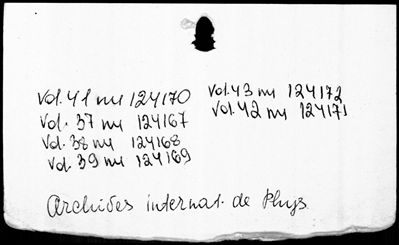 Vol. 41 nr 124170
Vol. 37 nr 124167
Vol. 38 nr 124168
Vol. 39 nr 124169
Vol. 43 nr 124172
Vol. 42 nr 124171
Archives internat. de Phys.